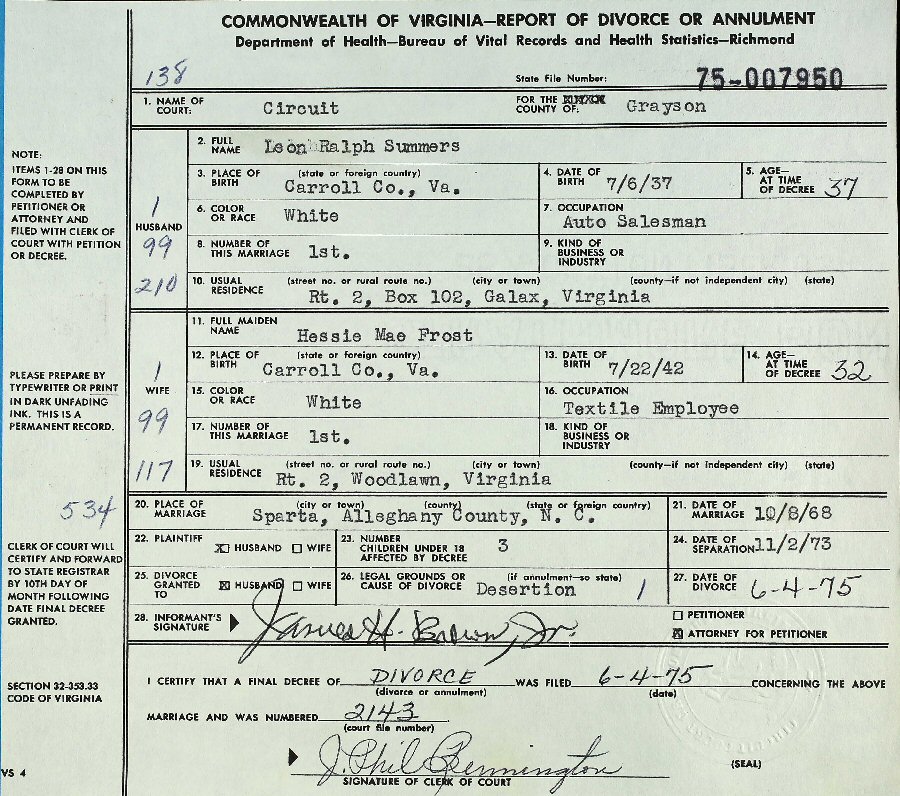 COMMONWEALTH OF VIRGINIA—REPORT OF DIVORCE OR ANNULMENT
Department of Health—Bureau of Vital Records and Health Statistics—Richmond
138
State File Number: 75-007950
1. NAME OF COURT: Circuit FOR THE COUNTY OF: Grayson
NOTE:
ITEMS 1-28 ON THIS
FORM TO BE
COMPLETED BY
PETITIONER OR
ATTORNEY AND
FILED WITH CLERK OF
COURT WITH PETITION
OR DECREE.
1
HUSBAND
99
210
2. FULL NAME Leon Ralph Summers
3. PLACE OF BIRTH (state or foreign country) Carroll Co., Va. 4. DATE OF BIRTH 7/6/37 5. AGE— AT TIME OF DECREE 37
6. COLOR OR RACE White 7. OCCUPATION Auto Salesman
8. NUMBER OF THIS MARRIAGE 1st. 9. KIND OF BUSINESS OR INDUSTRY
10. USUAL RESIDENCE (street no. or rural route no.) (city or town) (county—if not independent city) (state)
Rt. 2, Box 102, Galax, Virginia
PLEASE PREPARE BY
TYPEWRITER OR PRINT
IN DARK UNFADING
INK. THIS IS A
PERMANENT RECORD.
1
WIFE
99
117
11. FULL MAIDEN NAME Hessie Mae Frost
12. PLACE OF BIRTH (state or foreign country) Carroll Co., Va. 13. DATE OF BIRTH 7/22/42 14. AGE— AT TIME OF DECREE 32
15. COLOR OR RACE White 16. OCCUPATION Textile Employee
17. NUMBER OF THIS MARRIAGE 1st. 18. KIND OF BUSINESS OR INDUSTRY
19. USUAL RESIDENCE (street no. or rural route no.) (city or town) (county—if not independent city) (state)
Rt. 2, Woodlawn, Virginia
534
20. PLACE OF MARRIAGE (city or town) (county) (state or foreign country) Sparta, Alleghany County, N. C. 21. DATE OF MARRIAGE 10/8/68
22. PLAINTIFF X HUSBAND WIFE 23. NUMBER CHILDREN UNDER 18 AFFECTED BY DECREE 3 24. DATE OF SEPARATION 11/2/73
25. DIVORCE GRANTED TO X HUSBAND WIFE 26. LEGAL GROUNDS OR CAUSE OF DIVORCE (if annulment—so state) Desertion 1 27. DATE OF DIVORCE 6-4-75
28. INFORMANT'S SIGNATURE James H. Brown, Jr. PETITIONER
X ATTORNEY FOR PETITIONER
CLERK OF COURT WILL
CERTIFY AND FORWARD
TO STATE REGISTRAR
BY 10TH DAY OF
MONTH FOLLOWING
DATE FINAL DECREE
GRANTED.
SECTION 32-353.33
CODE OF VIRGINIA
I CERTIFY THAT A FINAL DECREE OF DIVORCE WAS FILED 6-4-75 CONCERNING THE ABOVE
(divorce or annulment) (date)
MARRIAGE AND WAS NUMBERED 2143
(court file number)
J. Phil Pennington
SIGNATURE OF CLERK OF COURT (SEAL)
VS 4